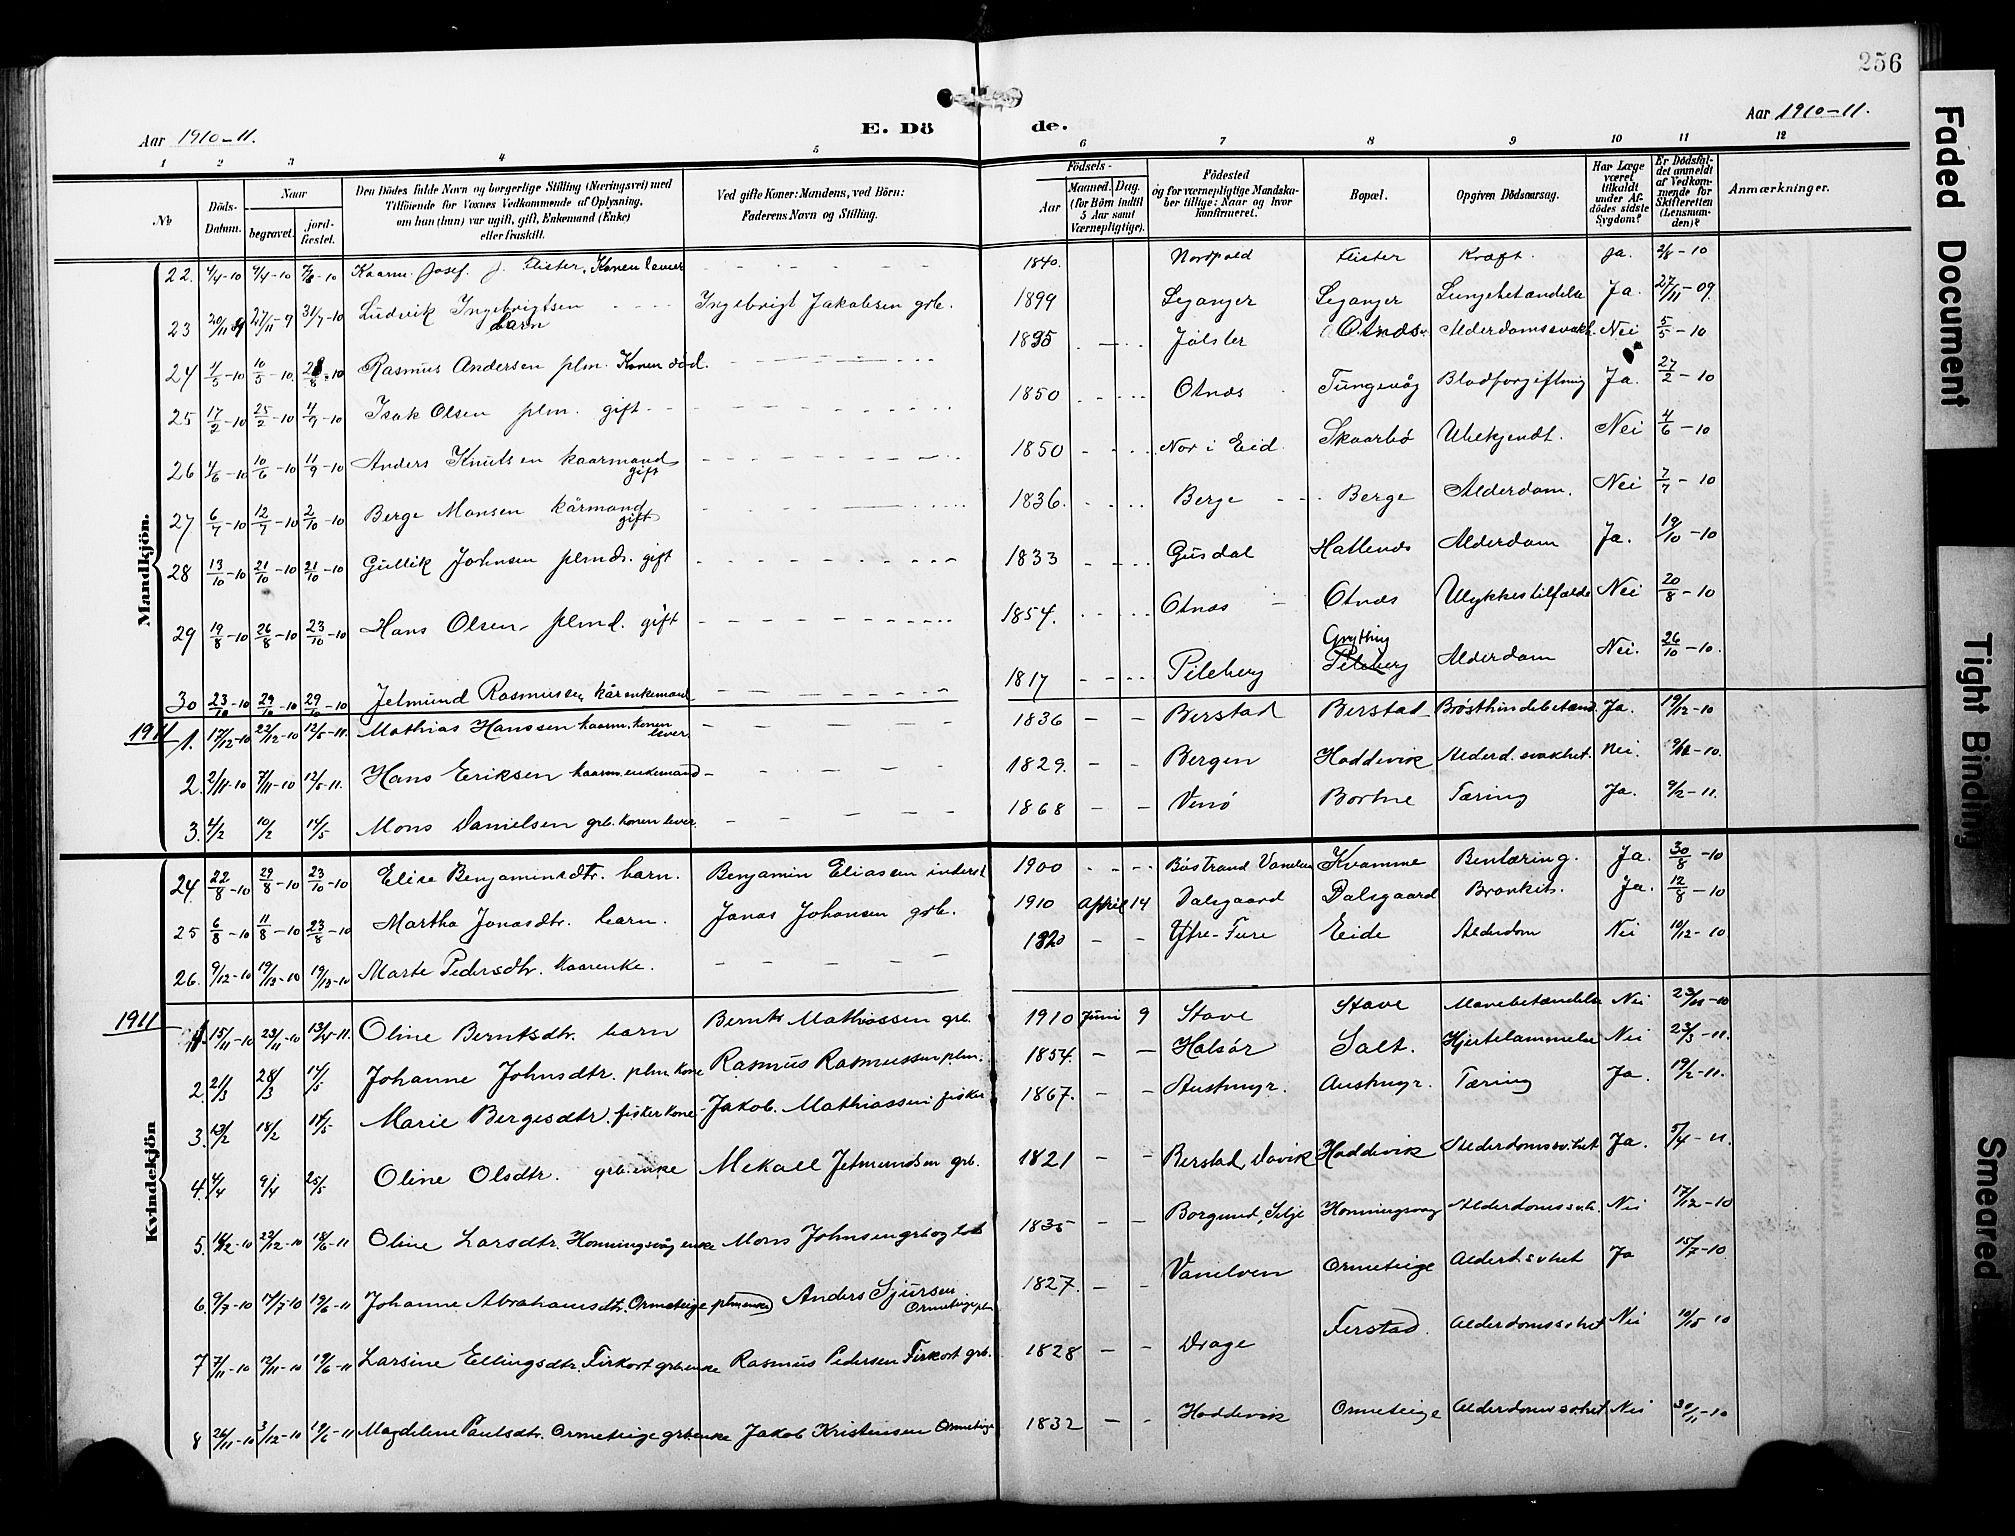 256
Aar 1910-11.
E. Dö de.
Aar 1910-11.
1 2 3 4 5 6 7 8 9 10 11 12
№
Döds-Datum.
Naar
begravet.
jord-fæstet.
Den Dödes fulde Navn og borgerlige Stilling (Næringsvei) med
Tilföiende for Voxnes Vedkommende af Oplysning,
om han (hun) var ugift, gift, Enkemand (Enke)
eller fraskilt.
Ved gifte Koner: Mandens, ved Börn:
Faderens Navn og Stilling.
Födsels-
Aar
Maaned. Dag.
(for Börn indtil
5 Aar samt
Værnepligtige).
Födested
og for værnepligtige Mandska-
ber tillige: Naar og hvor
konfirmeret.
Bopæl.
Opgiven Dödsaarsag.
Har Læge
været
tilkaldt
under Af-
dödes sidste
Sygdom?
Er Dödsfal-
det anmeldt
af Vedkom-
mende for
Skifteretten
(Lensman-
den)?
Anmærkninger.
Mandkjön.
22. 4/4-10 9/4-10 7/8-10 Kaarm. Josef J. Elister, Konen lever 1840. Nordpold Elister Kræft. Ja. 2/8-10
23 20/11 09 27/11-9 31/7-10 Ludvik Ingebrigtsen barn Ingebrigt Jakobsen grb. 1899 Leganger Leganger Lungebetændelse Ja. 27/11-09.
24 4/5-10 10/5-10. 28/8-10 Rasmus Andersen plm. Konen död. 1835 Jölster Otnæs Alderdomssvakh. Nei 5/5-10
25 17/2-10 25/2-10 4/9-10 Isak Olsen plm. gift 1850 Otnæs Tungevåg Blodforgiftning Ja. 27/2-10
26 4/6-10 10/6-10 11/9-10 Anders Knutsen kaarmand gift 1850 Nor i Eid. Skaarbö Ubekjendt. Nei 4/6-10
27 6/7-10 12/7-10 2/10-10 Berge Monsen kårmand gift 1836. Berge Berge Alderdom. Nei 7/7-10
28 13/10-10 21/10-10 21/10-10 Gullik Johnsen plmd. gift 1833 Gusdal Hatlenæs Alderdom Ja. 19/10-10
29 19/8-10 26/8-10 23/10-10 Hans Olsen plmd. gift 1854. Otnæs Otnæs Ulykkestilfælde Nei 20/8-10
30 23/10-10 29/10-10 29/10-10 Jetmund Rasmussen kårenkemand 1817 Pileberg Gryting Pileberg Alderdom Nei. 26/10-10.
1911 1. 17/12-10 22/12-10 12/5-11. Mathias Hanssen kaarm. konen lever. 1836 Berstad Berstad Brösthindebetænd. Ja. 19/12-10
2. 2/11-10 7/11-10 12/5-11. Hans Eriksen kaarm. enkemand 1829. Bergen Hoddevik Alderd. svakhet. Nei. 9/12-10.
3. 4/2 10/2 14/5 Mons Danielsen grb. konen lever. 1868 Venö Bortne Tæring Ja. 9/2-11.
Kvindekjön
24. 22/8-10 29/8-10 23/10-10 Elise Benjaminsdtr. barn. Benjamin Eliassen inderst 1900 Båstrand Vanelven Kvamme Bentæring. Ja. 30/8-10
25 6/8-10 11/8-10 23/8-10 Martha Jonasdtr. barn. Jonas Johansen grb. 1910 April 14 Dalsgaard Dalsgaard Bronkit. Ja. 12/8-10
26. 9/12-10 19/13-10 19/13-10 Marte Pedersdtr. Kaarenke. 1820 Ytre-Fure Eide Alderdom Nei 10/12-10
1911 1. 15/11-10 23/11-10 13/4-11. Oline Berntsdtr. barn Bernt Mathiassen grb. 1910 Juni 9 Stave Stave Mavebetændelse Nei 23/11-10
2. 21/3 28/3 14/5 Johanne Johnsdtr. plm. kone Rasmus Rasmussen plm. 1854. Halsör Salt. Hjertelammelse Nei 23/3-11.
3. 13/2 18/2 14/5 Marie Bergesdtr. fiskerkone Jakob. Mathiassen fisker 1867. Austmyr. Austmyr. Tæring Ja. 19/2-11.
4. 4/4 9/4 25/5 Oline Olsdtr. grb. enke Mekael Jetmundsen grb. 1821 Berstad, Davik Hoddevik Alderdomssvhet Ja. 5/4-11.
5. 16/12-10 23/12-10 18/6-11 Oline Larsdtr. Honningsvåg enke Mons Johnsen grb og los 1835 Borgund, Selje Honningsvaag Alderdomssvh. Nei 17/12-10
6. 9/7-10 17/7-10 19/6-11 Johanne Abrahamsdtr. Ormeteige plmenke Anders Sjursen Ormeteige plm 1827. Vanelven Ormeteige Alderd.svhet Ja 15/7-10.
7 7/11-10 12/11-10 19/6-11 Larsine Ellingsdtr. Firkort grb.enke Rasmus Pedersen Firkort grb. 1828 Drage Ferstad. Alderdomssvhet Nei 10/15 10
8 26/11-10 3/12-10 19/6-11 Magdelene Paulsdtr. Ormeteige grb.enke Jakob Kristensen Ormeteige 1832 Hoddevik Ormeteige Alderdomssvhet Nei 30/11-10
Faded Document
Tight Binding
Smeared